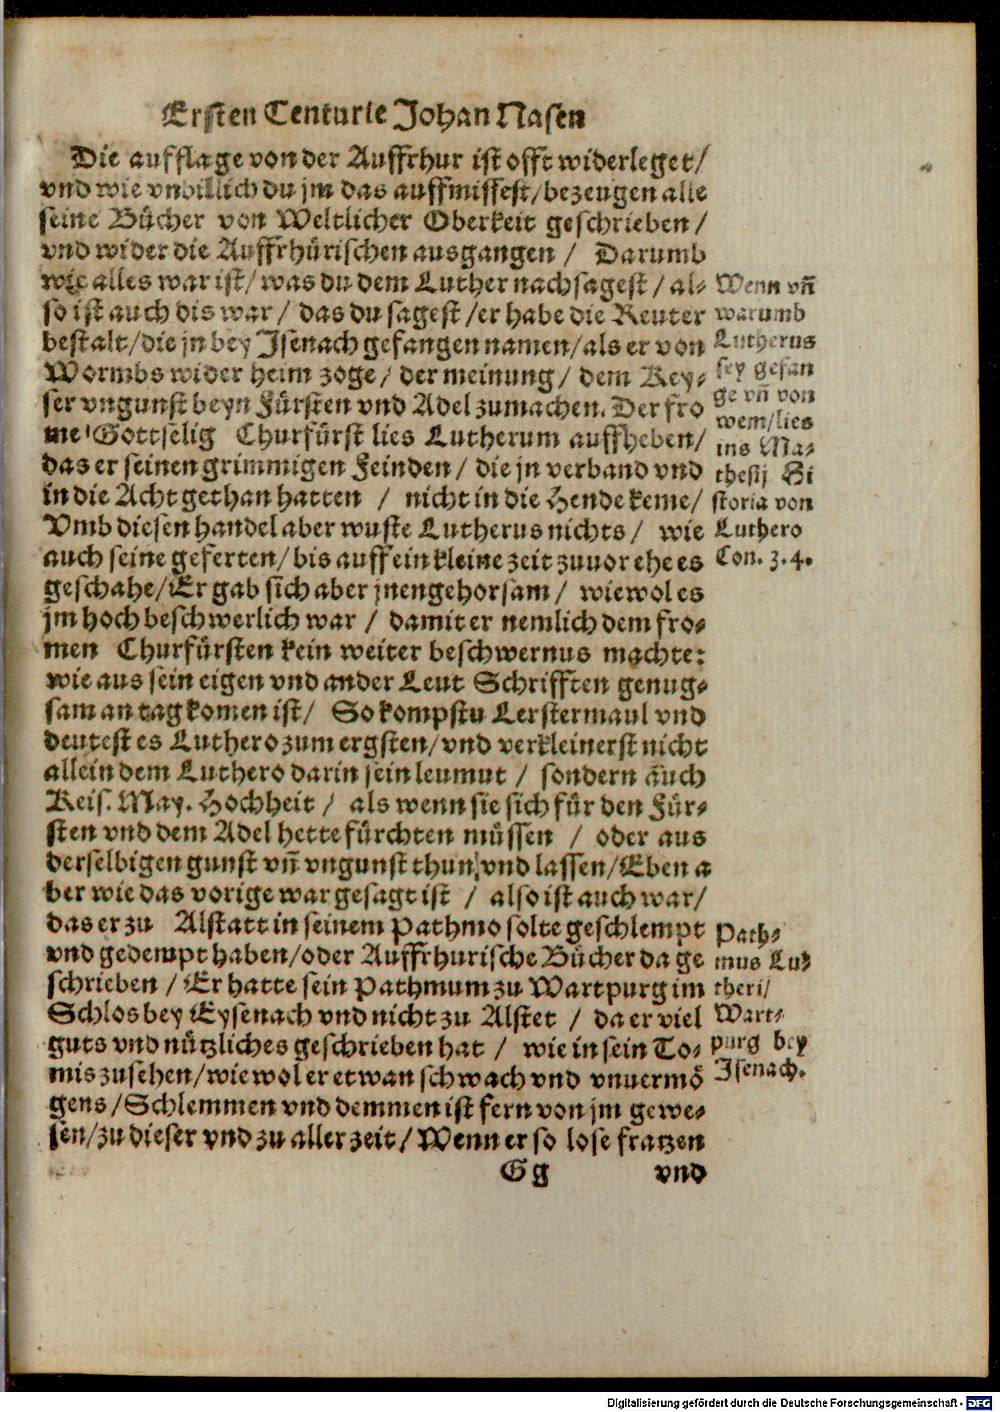 Ersten Centurie Johan Nasen
Die aufflage von der Auffrhur ist offt widerleget/
vnd wie vnbillich du jm das auffmissest/bezeugen alle
seine Bücher von Weltlicher Oberkeit geschrieben/
vnd wider die Auffrhürischen ausgangen / Darumb
wie alles war ist/was du dem Luther nachsagest/al-
so ist auch dis war/ das du sagest/er habe die Reuter
bestalt/die jn bey Isenach gefangen namen/als er von
Wormbs wider heim zoge/ der meinung/ dem Key-
ser vngunst beyn Fürsten vnd Adel zumachen. Der fro
me Gottselig Churfürst lies Lutherum auffheben/
das er seinen grimmigen Feinden/ die jn verband vnd
in die Acht gethan hatten / nicht in die Hende keme/
Vmb diesen handel aber wuste Lutherus nichts/ wie
auch seine geferten/bis auff ein kleine zeit zuuor ehe es
geschahe/Er gab sich aber jnen gehorsam/ wiewol es
jm hoch beschwerlich war / damit er nemlich dem fro-
men Churfürsten kein weiter beschwernus machte:
wie aus sein eigen vnd ander Leut Schrifften genug-
sam an tag komen ist/ So kompstu Lerstermaul vnd
deutest es Luthero zum ergsten/vnd verkleinerst nicht
allein dem Luthero darin sein leumut / sondern auch
Keis. May. Hochheit / als wenn sie sich für den Für-
sten vnd dem Adel hette fürchten müssen / oder aus
derselbigen gunst vn̄ vngunst thun vnd lassen/Eben a
ber wie das vorige war gesagt ist / also ist auch war/
das er zu Alstatt in seinem Pathmo solte geschlempt
vnd gedempt haben/oder Auffrhurische Bücher da ge
schrieben/Er hatte sein Pathmum zu Wartpurg im
Schlos bey Eysenach vnd nicht zu Alstet / da er viel
guts vnd nützliches geschrieben hat / wie in sein To-
mis zusehen/wiewol er etwan schwach vnd vnuermö
gens/Schlemmen vnd demmen ist fern von jm gewe-
sen/zu dieser vnd zu aller zeit/Wenn er so lose fratzen
Gg vnd
Wenn vn̄
warumb
Lutherus
sey gefan
ge vn̄ von
wem/lies
ins Ma-
thesij Hi
storia von
Luthero
Con. 3. 4.
Path-
mus Lu-
theri/
Wart-
purg bey
Isenach.
Digitalisierung gefördert durch die Deutsche Forschungsgemeinschaft - DFG